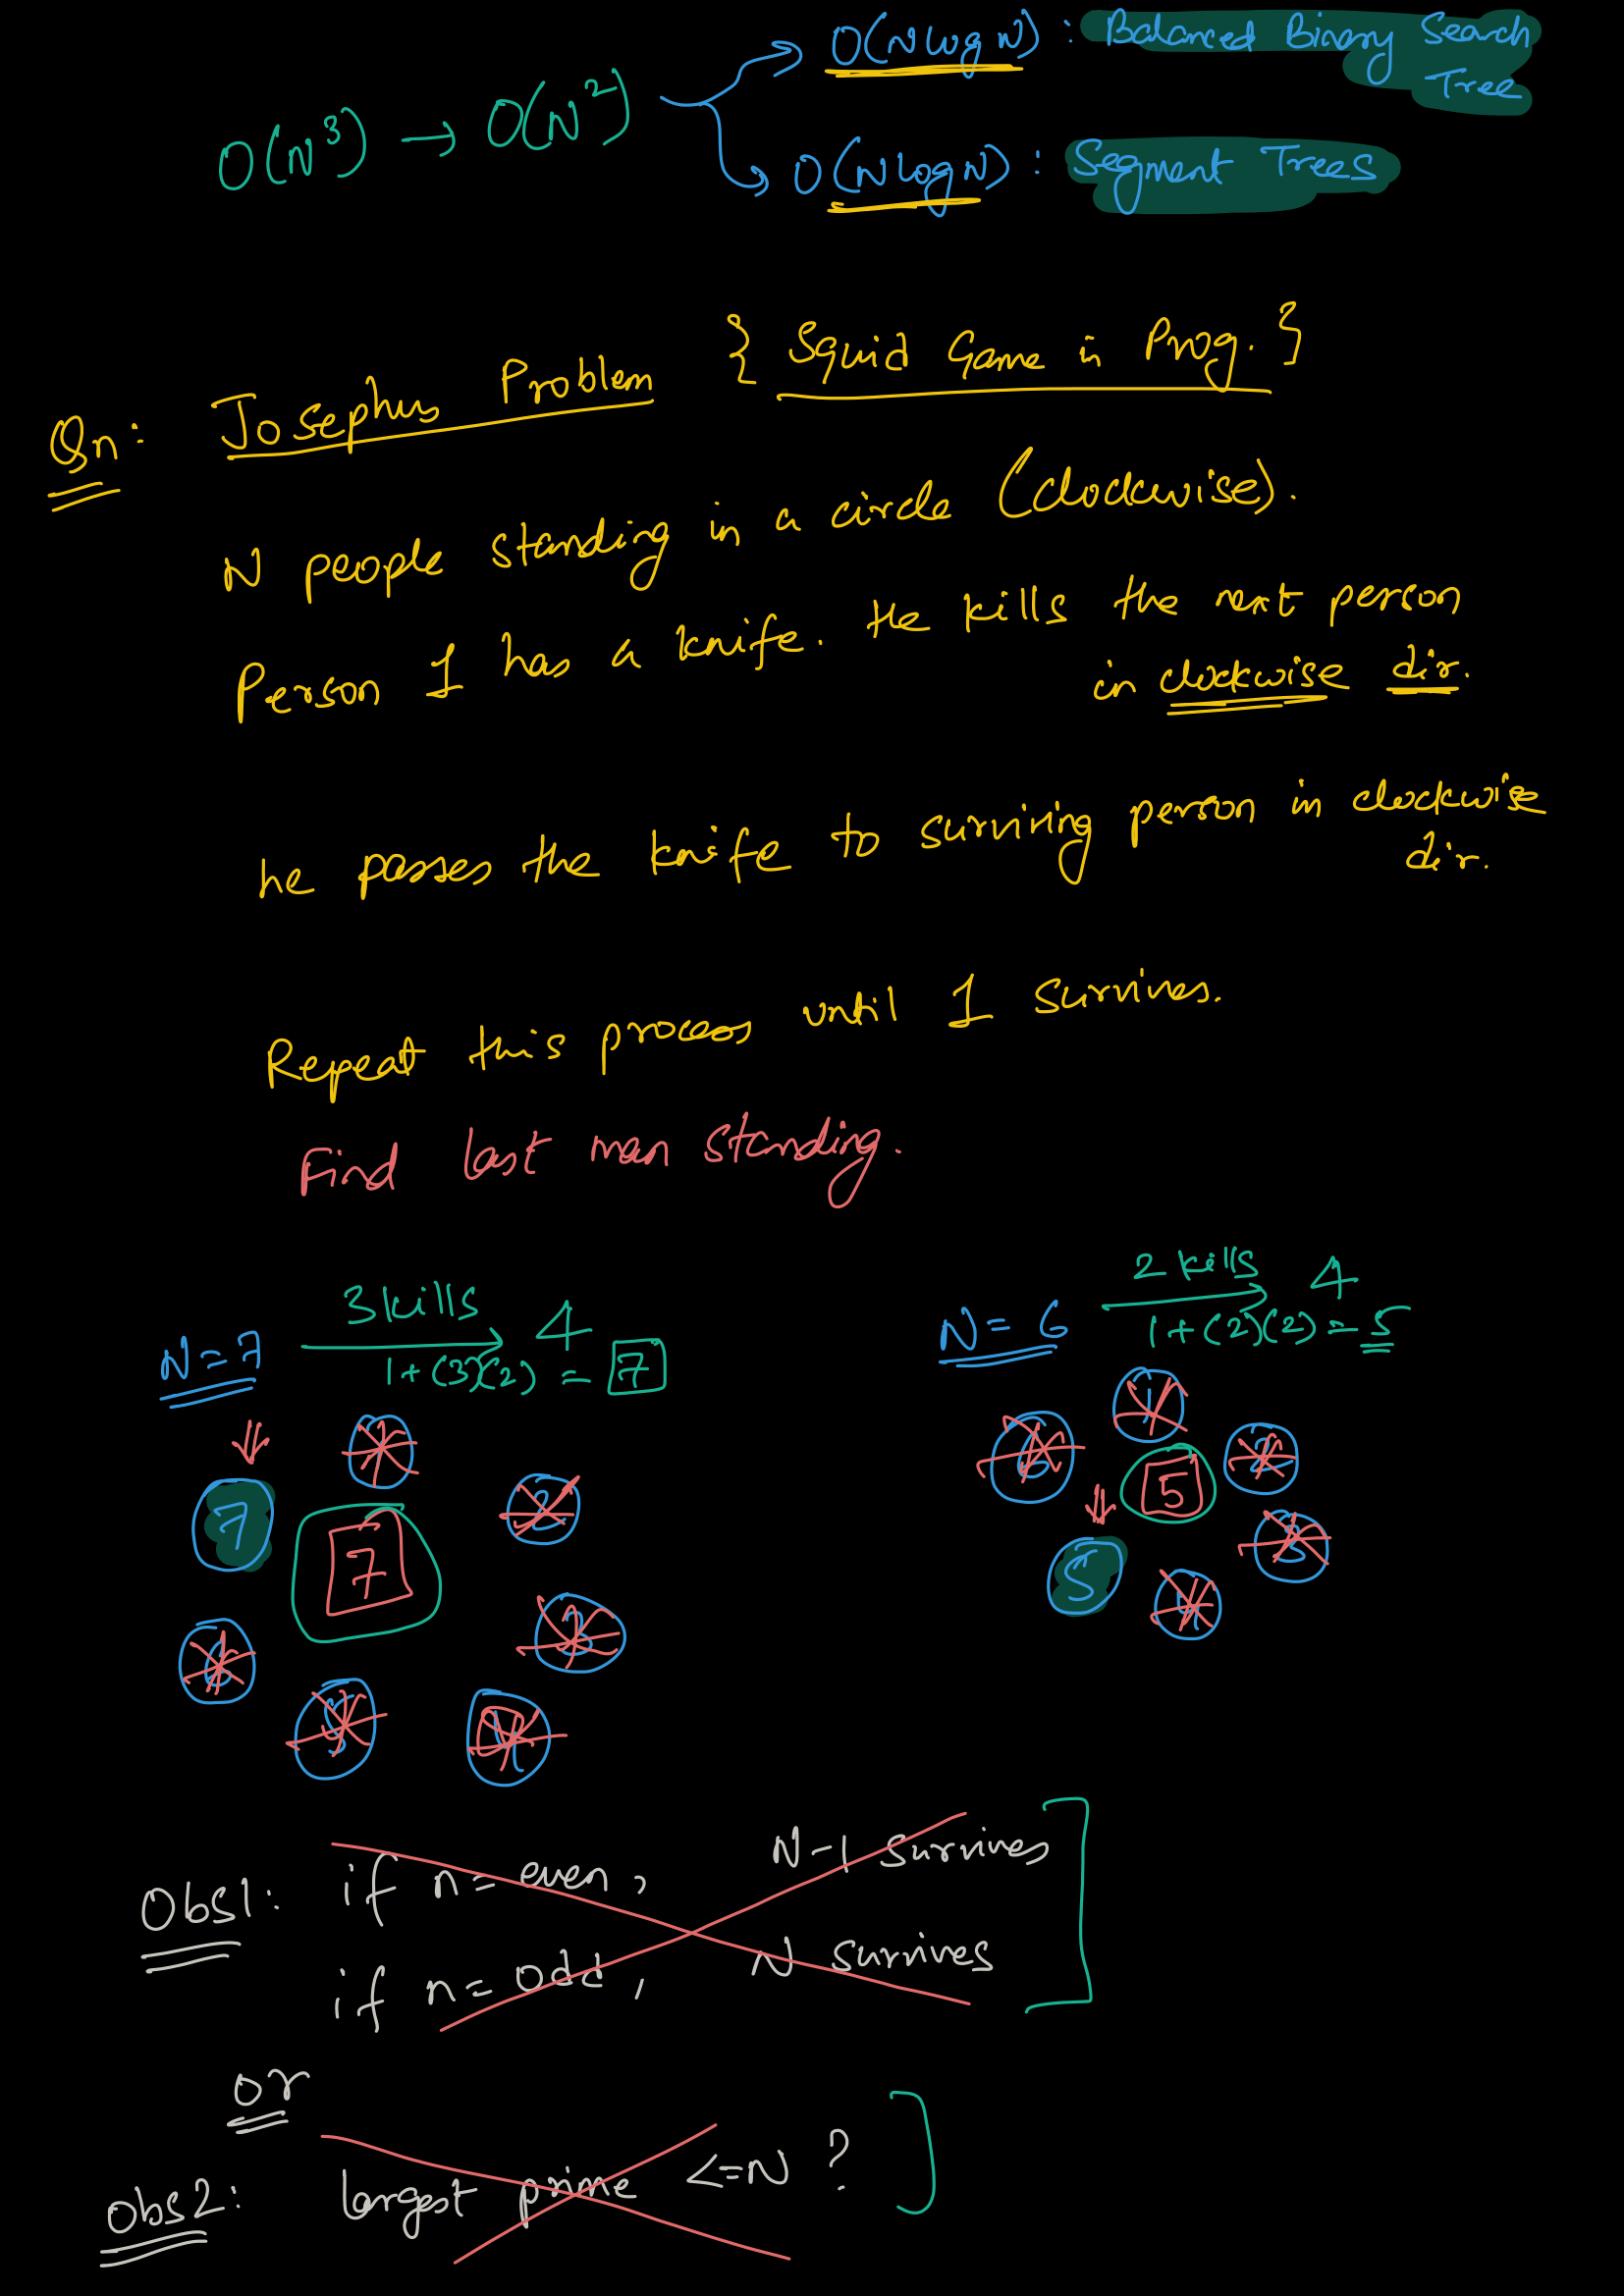 O(N³) → O(N²)
O(N log N) : Balanced Binary Search
Tree
O(N log N) : Segment Trees
Qn: Josephus Problem { Squid Game in Prog. }
N people standing in a circle (clockwise).
Person 1 has a knife. He kills the next person
in clockwise dir.
he passes the knife to surviving person in clockwise
dir.
Repeat this process until 1 survives.
Find last man standing.
N=7 3 kills 4
1+(3)(2) = 7
1
2
3
4
5
6
7
7
N = 6 2 kills 4
1+(2)(2) = 5
1
2
3
4
5
6
5
Obs1: if n = even, N-1 survives
if n = odd, N survives
or
Obs2: largest prime <=N ?